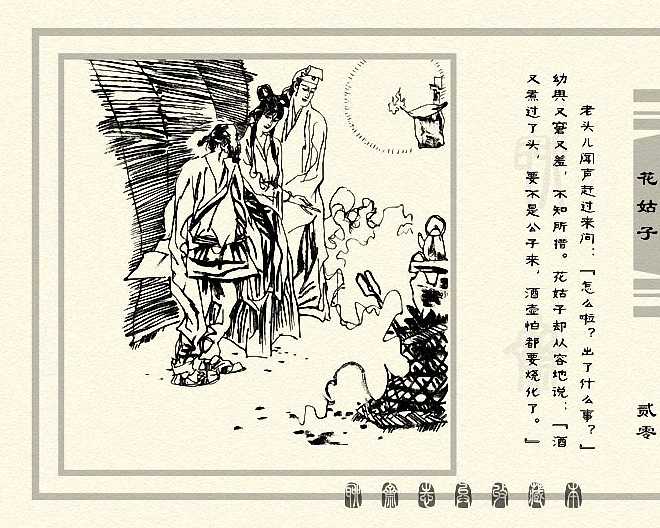 老头儿闻声赶过来问：“怎么啦？出了什么事？”
幼舆又窘又羞，不知所措。花姑子却从容地说：“酒
又煮过了头，要不是公子来，酒壶怕都要烧化了。”
花姑子
贰零
聊斋志异收藏本